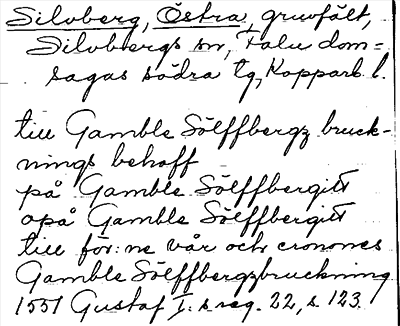 Silvberg, Östra, gruvfält,
Silvbergs sn, Falu dom=
sagas södra tg, Kopparb. l.
till Gamble Sölffbergz bruck-
nings behoff
på Gamble Sölffbergitt
opå Gamble Sölffbergitt
till för:ne vår och cronones
Gamble Sölffbergzbruckning
1551 Gustaf I:s reg. 22, s. 123